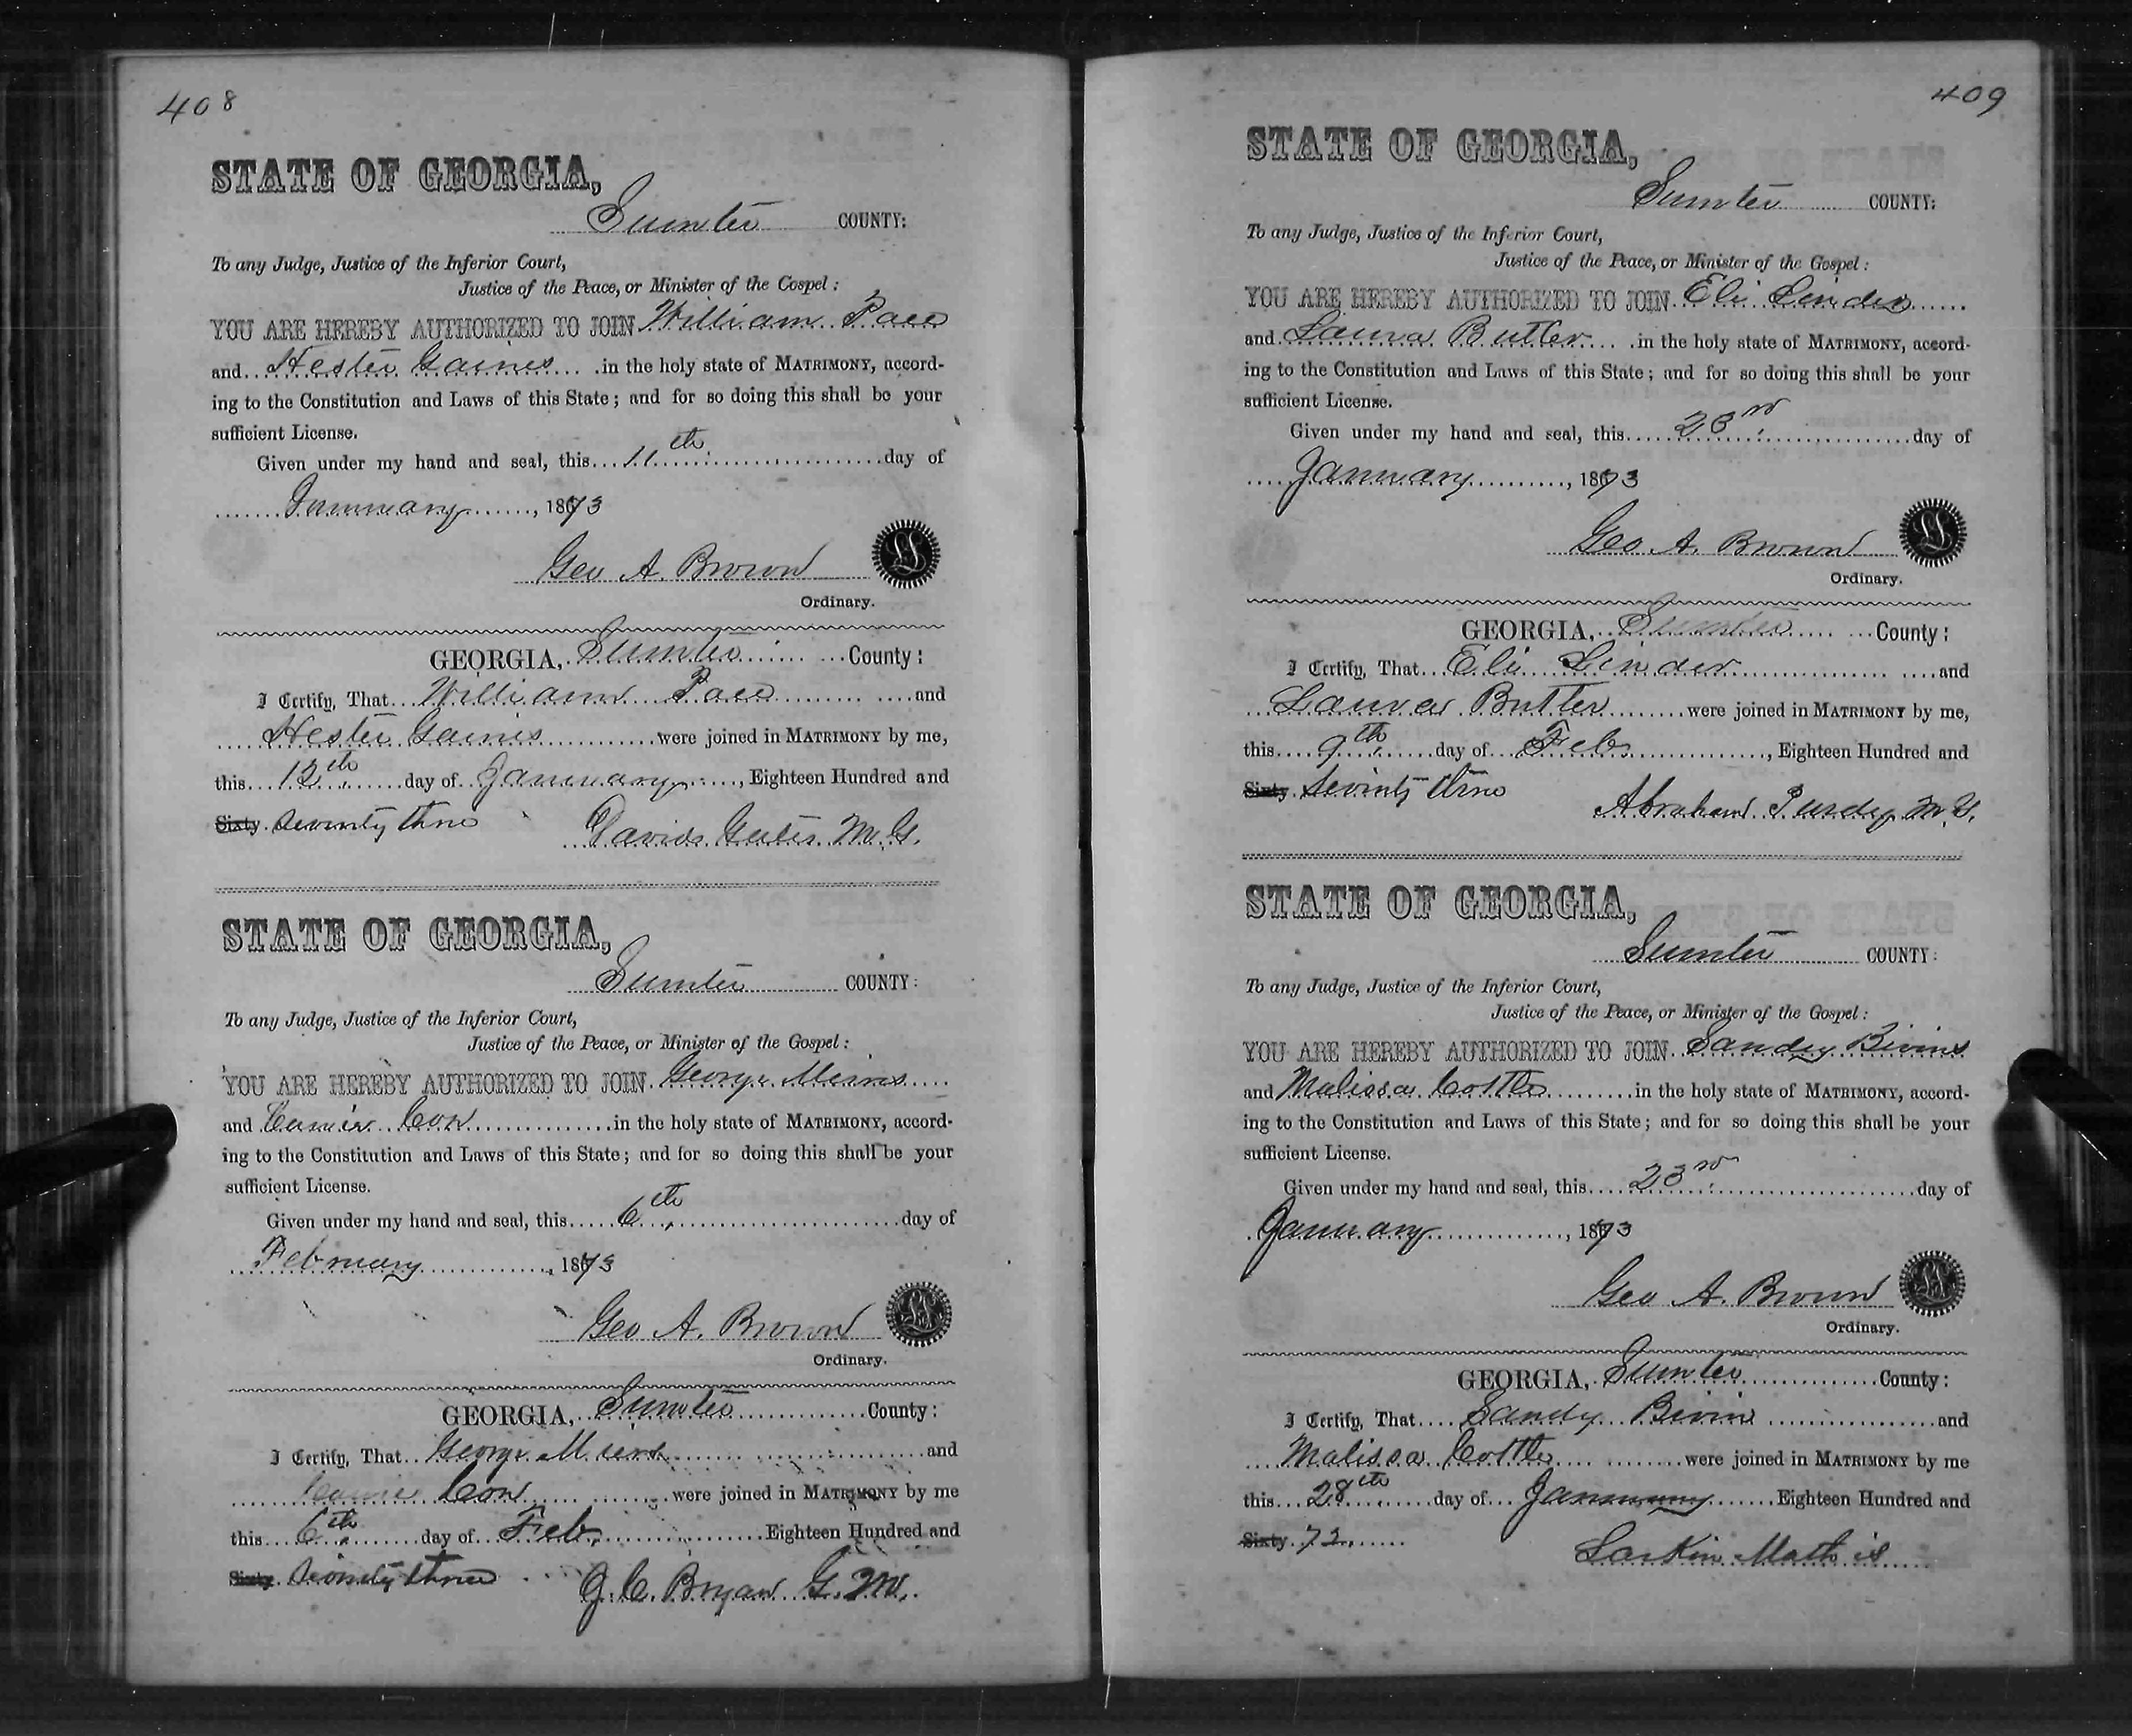 408
STATE OF GEORGIA,
Sumter COUNTY:
To any Judge, Justice of the Inferior Court,
Justice of the Peace, or Minister of the Gospel:
YOU ARE HEREBY AUTHORIZED TO JOIN William Pace
and Hester Gaines in the holy state of MATRIMONY, accord-
ing to the Constitution and Laws of this State; and for so doing this shall be your
sufficient License.
Given under my hand and seal, this 11th day of
January, 1873
Geo A. Brown
Ordinary.
GEORGIA, Sumter County:
I Certify, That William Pace and
Hester Gaines were joined in MATRIMONY by me,
this 12th day of January, Eighteen Hundred and
Sixty seventy three David M.G.
STATE OF GEORGIA,
Sumter COUNTY:
To any Judge, Justice of the Inferior Court,
Justice of the Peace, or Minister of the Gospel:
YOU ARE HEREBY AUTHORIZED TO JOIN George Mims
and Cox in the holy state of MATRIMONY, accord-
ing to the Constitution and Laws of this State; and for so doing this shall be your
sufficient License.
Given under my hand and seal, this 6th day of
February, 1873
Geo A. Brown
Ordinary.
GEORGIA, Sumter County:
I Certify, That George Mims and
Cox were joined in MATRIMONY by me
this 6th day of Feb, Eighteen Hundred and
Sixty seventy three J. C. Bryan G. M.
409
STATE OF GEORGIA,
Sumter COUNTY:
To any Judge, Justice of the Inferior Court,
Justice of the Peace, or Minister of the Gospel:
YOU ARE HEREBY AUTHORIZED TO JOIN Eli Linder
and Laura Butler in the holy state of MATRIMONY, accord-
ing to the Constitution and Laws of this State; and for so doing this shall be your
sufficient License.
Given under my hand and seal, this 23rd day of
January, 1873
Geo A. Brown
Ordinary.
GEORGIA, Sumter County:
I Certify, That Eli Linder and
Laura Butler were joined in MATRIMONY by me,
this 9th day of Feb, Eighteen Hundred and
Sixty seventy three Abraham Purdy M.G.
STATE OF GEORGIA,
Sumter COUNTY:
To any Judge, Justice of the Inferior Court,
Justice of the Peace, or Minister of the Gospel:
YOU ARE HEREBY AUTHORIZED TO JOIN Sandy Bivins
and Malissa Cottle in the holy state of MATRIMONY, accord-
ing to the Constitution and Laws of this State; and for so doing this shall be your
sufficient License.
Given under my hand and seal, this 23rd day of
January, 1873
Geo A. Brown
Ordinary.
GEORGIA, Sumter County:
I Certify, That Sandy Bivins and
Malissa Cottle were joined in MATRIMONY by me
this 28th day of January Eighteen Hundred and
Sixty 73 Larkin Mathis